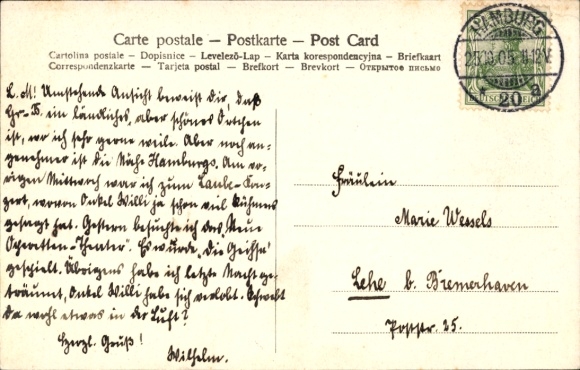 Carte postale – Postkarte – Post Card
Cartolina postale – Dopisnice – Levelező-Lap – Karta korespondencyjna – Briefkaart
Correspondenzkarte – Tarjeta postal – Brefkort – Brevkort – Открытое письмо
HAMBURG
11-12V
* 20 a
DEUTSCHES REICH
L. M! Umstehende Ansicht beweist Dir, daß
Gr.-B. ein ländliches, aber schönes Örtchen
ist, wo ich sehr gerne weile. Aber noch an-
genehmer ist die Nähe Hamburgs. Am vo-
rigen Mittwoch war ich zum Kon-
zert, wovon Onkel Willi ja schon viel Rühmens
gesagt hat. Gestern besuchte ich das "Neue
Operetten-Theater". Es wurde "Die Geisha"
gespielt. Übrigens habe ich letzte Nacht ge-
träumt, Onkel Willi habe sich verlobt. Schwebt
da wohl etwas in der Luft?
Herzl. Gruß!
Wilhelm.
Fräulein
Marie Wessels
Lehe b. Bremerhaven
Poststr. 25.